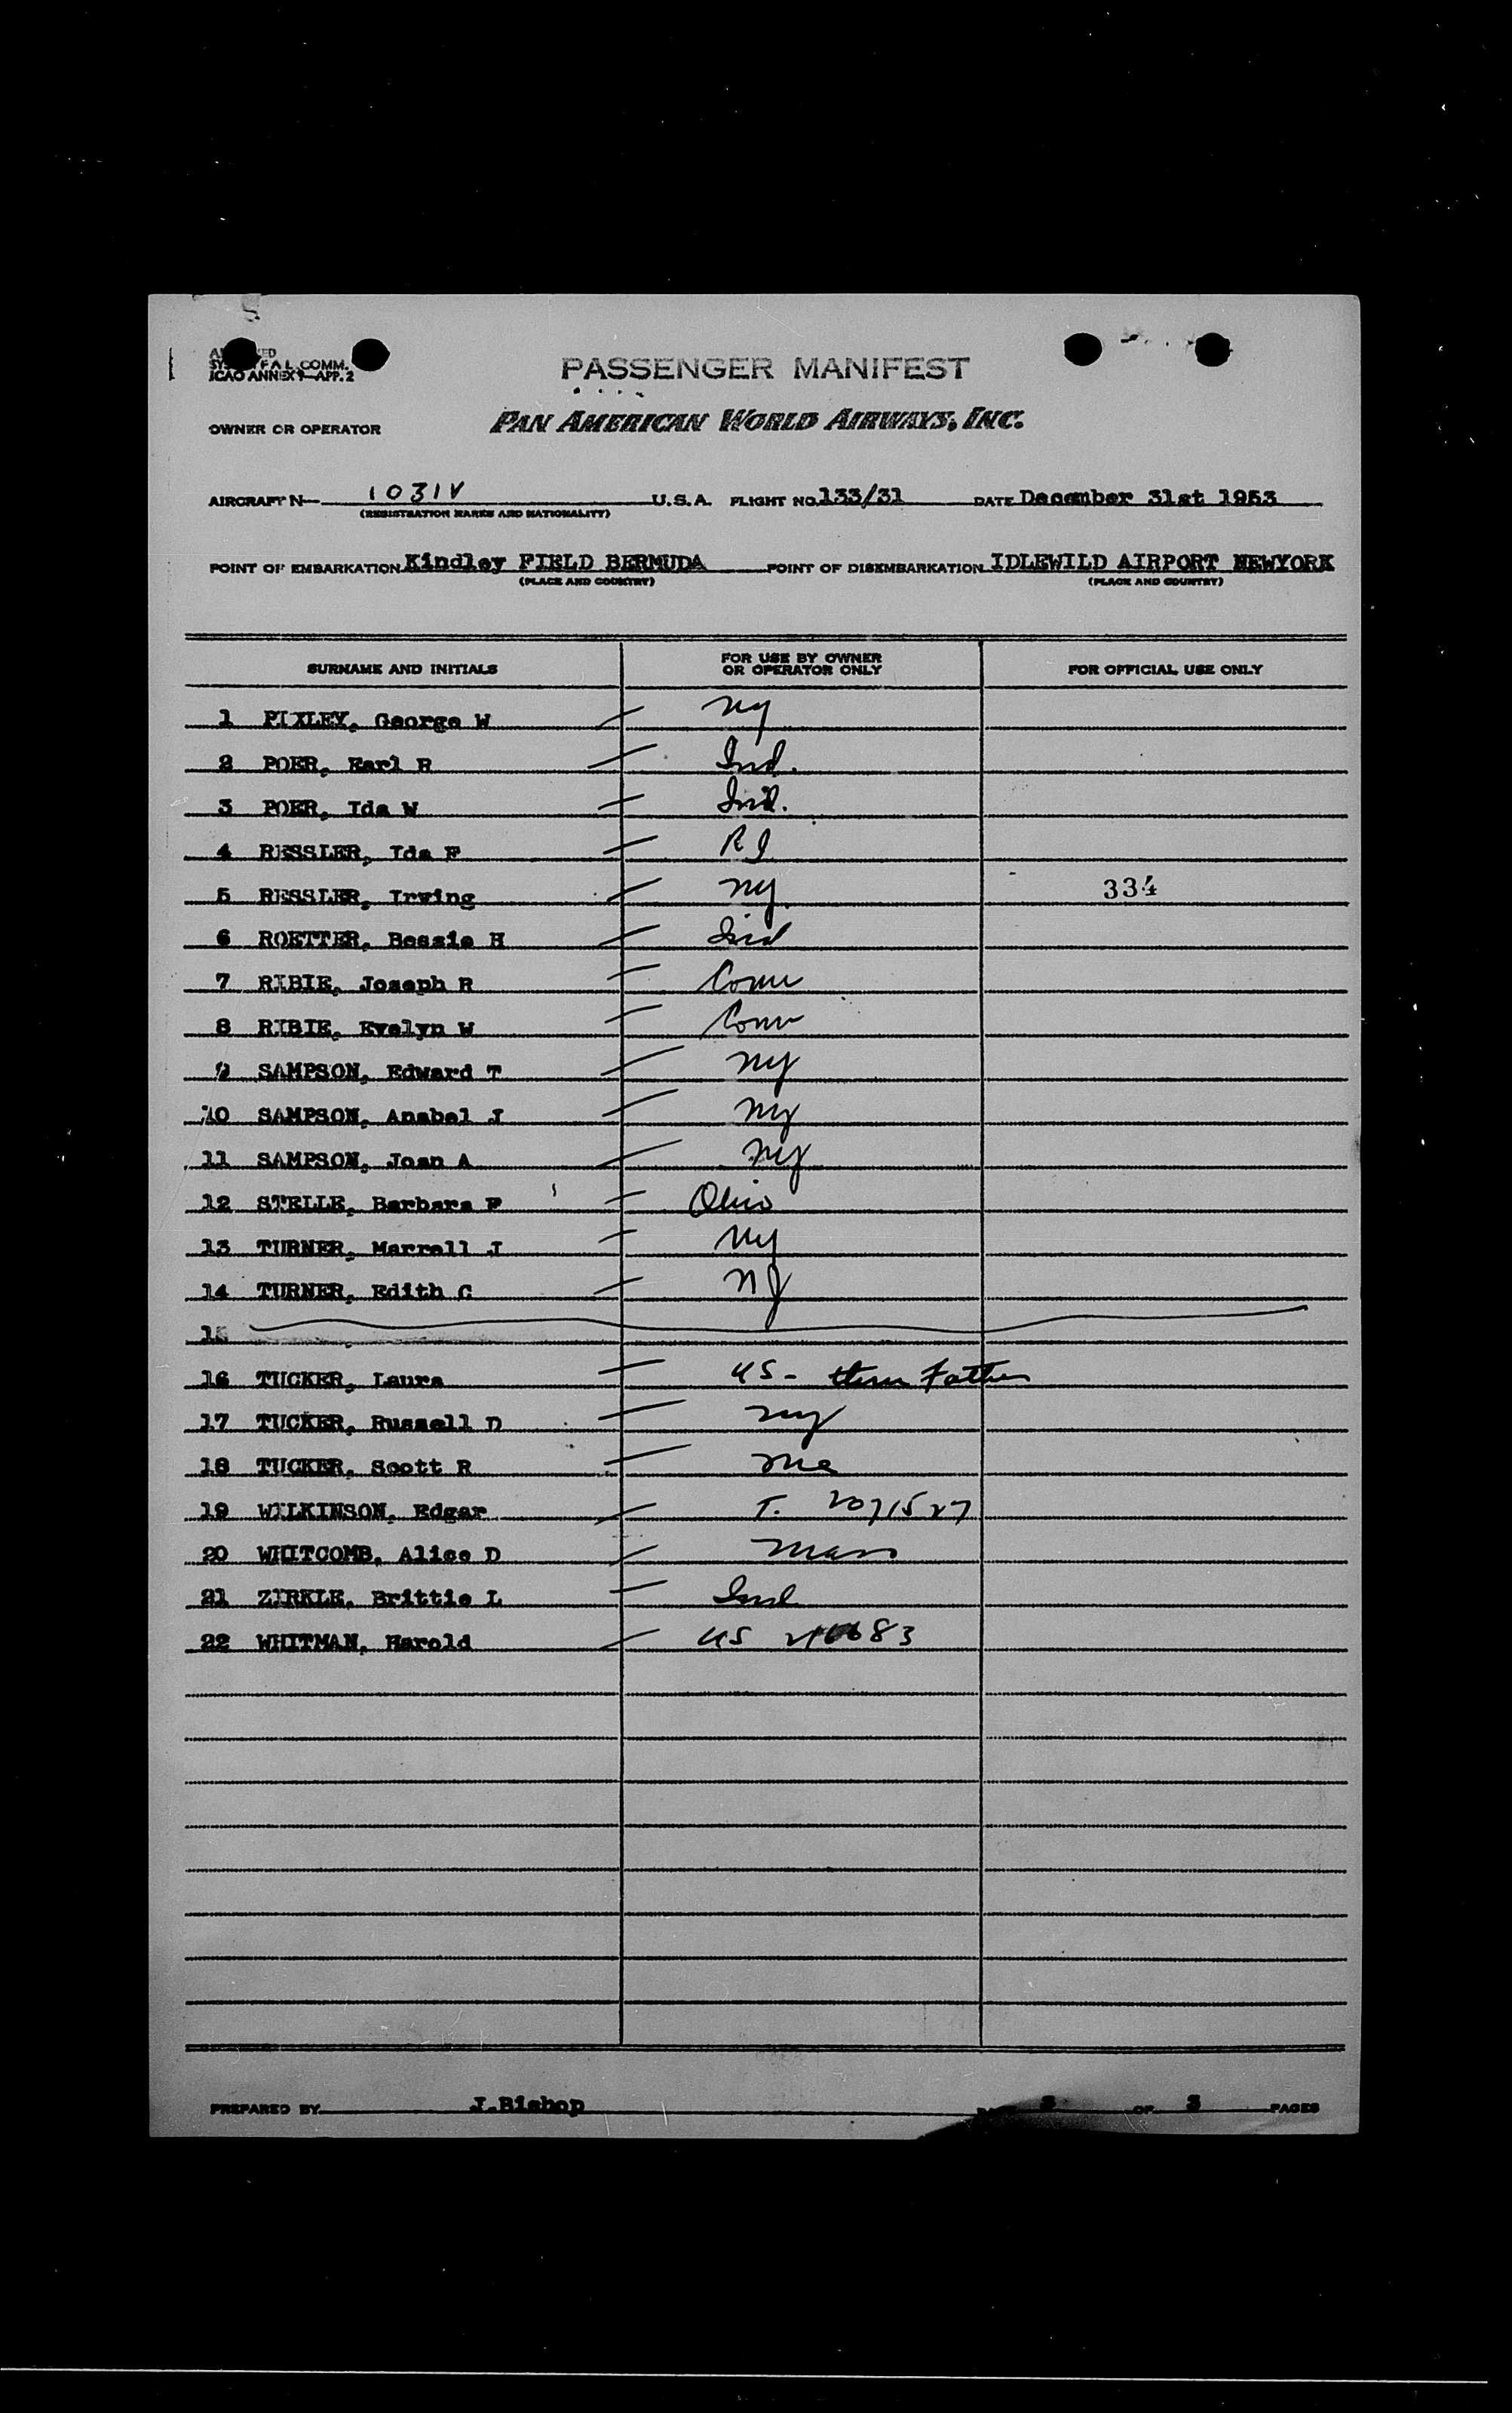 SYS F A L COMM.
ICAO ANNEX 9—APP. 2
PASSENGER MANIFEST
OWNER OR OPERATOR PAN AMERICAN WORLD AIRWAYS, INC.
AIRCRAFT N— 1031V U.S.A. FLIGHT NO. 133/31 DATE December 31st 1953
(REGISTRATION MARKS AND NATIONALITY)
POINT OF EMBARKATION Kindley FIELD BERMUDA POINT OF DISEMBARKATION IDLEWILD AIRPORT NEWYORK
(PLACE AND COUNTRY) (PLACE AND COUNTRY)
SURNAME AND INITIALS FOR USE BY OWNER OR OPERATOR ONLY FOR OFFICIAL USE ONLY
1 PIXLEY, George W NY
2 POER, Earl R Ind.
3 POER, Ida W Ind.
4 RESSLER, Ida F RI
5 RESSLER, Irving NY 334
6 ROETTER, Bessie H Ind
7 RIBIE, Joseph R Conn
8 RIBIE, Evelyn W Conn
9 SAMPSON, Edward T NY
10 SAMPSON, Anabel J NY
11 SAMPSON, Joan A NY
12 STELLE, Barbara F Ohio
13 TURNER, Marrell J NY
14 TURNER, Edith C NJ
15
16 TUCKER, Laura US - thru Father
17 TUCKER, Russell D NY
18 TUCKER, Scott R Me
19 WILKINSON, Edgar T. 2071527
20 WHITCOMB, Alice D Mass
21 ZIRKLE, Brittie L Ind
22 WHITMAN, Harold US
PREPARED BY J.Bishop 3 OF 3 PAGES